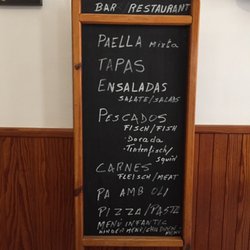 BAR RESTAURANT
PAELLA mixta
TAPAS
ENSALADAS
SALATE/SALADS
PESCADOS
FISCH/FISH
· Dorada
· Tintenfisch/
squid
CARNES
FLEISCH/MEAT
PA AMB OLI
PIZZA/PASTA
MENÚ INFANTIL
KINDERMENÜ/CHILDREN
MENÚ